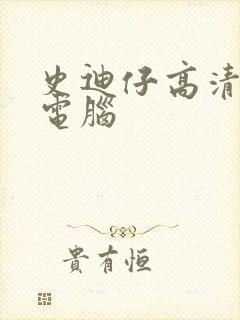 史迪仔高清
電腦
貴有恒